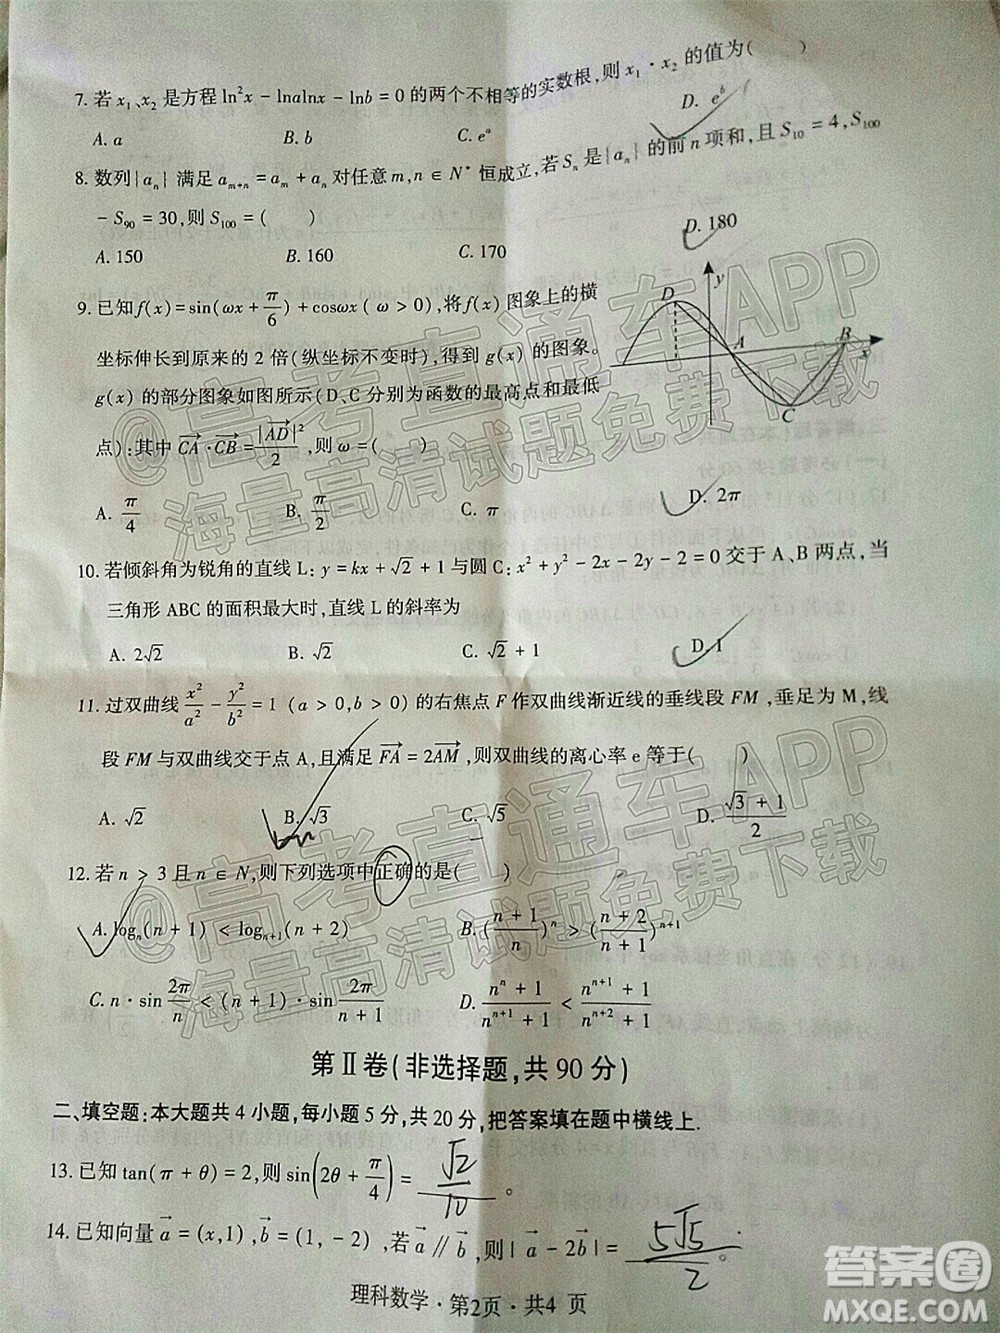 7. 若 x₁、x₂ 是方程 ln²x - lnalnx - lnb = 0 的两个不相等的实数根,则 x₁ · x₂ 的值为(  )
A. a  B. b  C. eᵃ  D. eᵇ
8. 数列{aₙ}满足 aₘ₊ₙ = aₘ + aₙ 对任意 m,n ∈ N* 恒成立,若 Sₙ 是{aₙ}的前 n 项和,且 S₁₀ = 4,S₁₀₀
- S₉₀ = 30,则 S₁₀₀ = (  )
A. 150  B. 160  C. 170  D. 180
9. 已知 f(x) = sin(ωx + π/6) + cosωx ( ω > 0),将 f(x) 图象上的横
坐标伸长到原来的 2 倍(纵坐标不变时),得到 g(x) 的图象。
g(x) 的部分图象如图所示(D、C 分别为函数的最高点和最低
点):其中 CA · CB = |AD|²/2 ,则 ω = (  )
A. π/4  B. π/2  C. π  D. 2π
D y A B x C
10. 若倾斜角为锐角的直线 L: y = kx + √2 + 1 与圆 C: x² + y² - 2x - 2y - 2 = 0 交于 A、B 两点,当
三角形 ABC 的面积最大时,直线 L 的斜率为
A. 2√2  B. √2  C. √2 + 1  D. 1
11. 过双曲线 x²/a² - y²/b² = 1 (a > 0,b > 0) 的右焦点 F 作双曲线渐近线的垂线段 FM,垂足为 M,线
段 FM 与双曲线交于点 A,且满足 FA = 2AM,则双曲线的离心率 e 等于(  )
A. √2  B. √3  C. √5  D. (√3 + 1)/2
12. 若 n > 3 且 n ∈ N,则下列选项中正确的是(  )
A. logₙ(n + 1) < logₙ₊₁(n + 2)  B. ((n + 1)/n)ⁿ > ((n + 2)/(n + 1))ⁿ⁺¹
C. n · sin 2π/n < (n + 1) · sin 2π/(n + 1)  D. (nⁿ + 1)/(nⁿ⁺¹ + 1) < (nⁿ⁺¹ + 1)/(nⁿ⁺² + 1)
第 Ⅱ 卷(非选择题,共 90 分)
二、填空题:本大题共 4 小题,每小题 5 分,共 20 分,把答案填在题中横线上.
13. 已知 tan(π + θ) = 2,则 sin(2θ + π/4) = √2/10 。
14. 已知向量 a = (x,1),b = (1, -2) ,若 a ∥ b,则 | a - 2b | = 5√5/2 。
理科数学 · 第2页 · 共4 页
@高考直通车APP
海量高清试题免费下载
@高考直通车APP
海量高清试题免费下载
答案圈
MXQE.COM